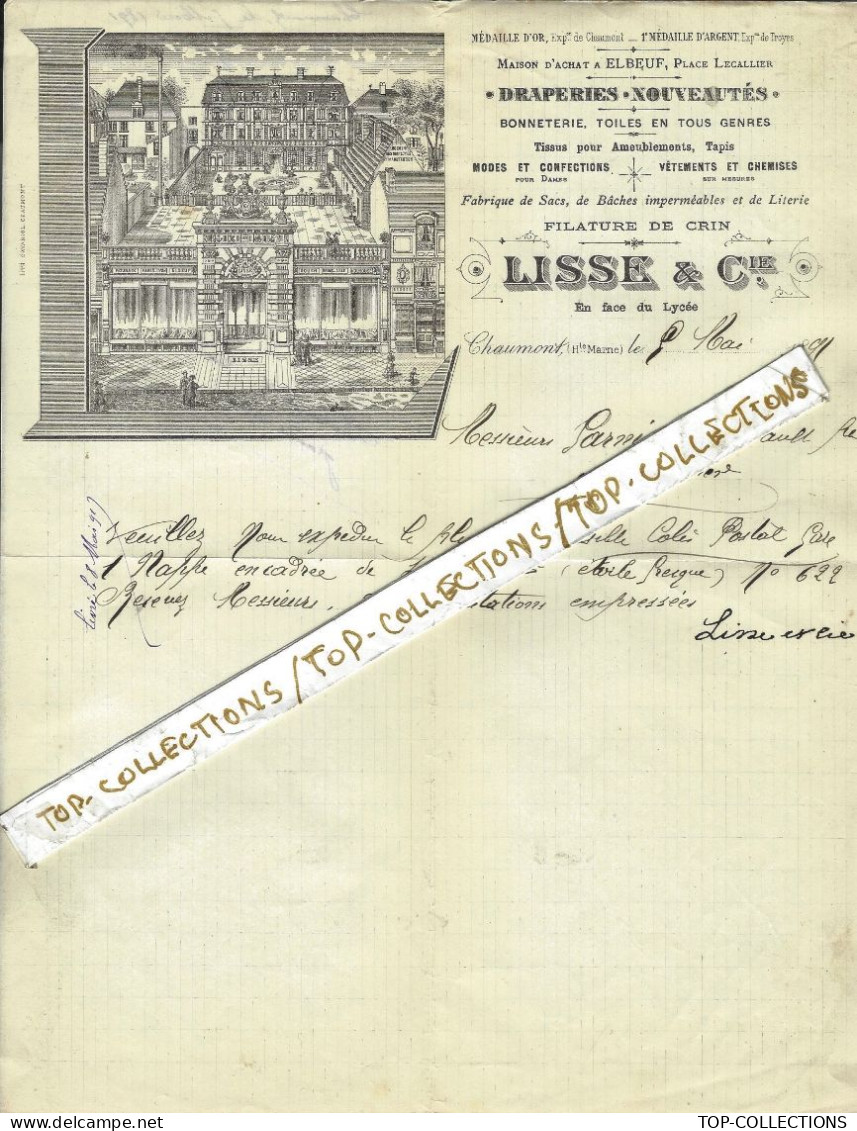 MÉDAILLE D'OR, Exp.on de Chaumont — 1e MÉDAILLE D'ARGENT, Exp.on de Troyes
MAISON D'ACHAT A ELBEUF, PLACE LECALLIER
DRAPERIES · NOUVEAUTÉS
BONNETERIE, TOILES EN TOUS GENRES
Tissus pour Ameublements, Tapis
MODES ET CONFECTIONS POUR DAMES
VÊTEMENTS ET CHEMISES SUR MESURES
Fabrique de Sacs, de Bâches imperméables et de Literie
FILATURE DE CRIN
LISSE & CIE.
En face du Lycée
Chaumont, (Hte Marne) le Mai
LISSE
Messieurs
Veuillez nous expédier le Colis Postal Gare
1 Nappe encadrée de (étoile grecque) No 622
Recevez Messieurs, empressées
Lisse et cie
Livré le 8 Mai 91
TOP-COLLECTIONS / TOP-COLLECTIONS / TOP-COLLECTIONS / TOP-COLLECTIONS
TOP-COLLECTIONS